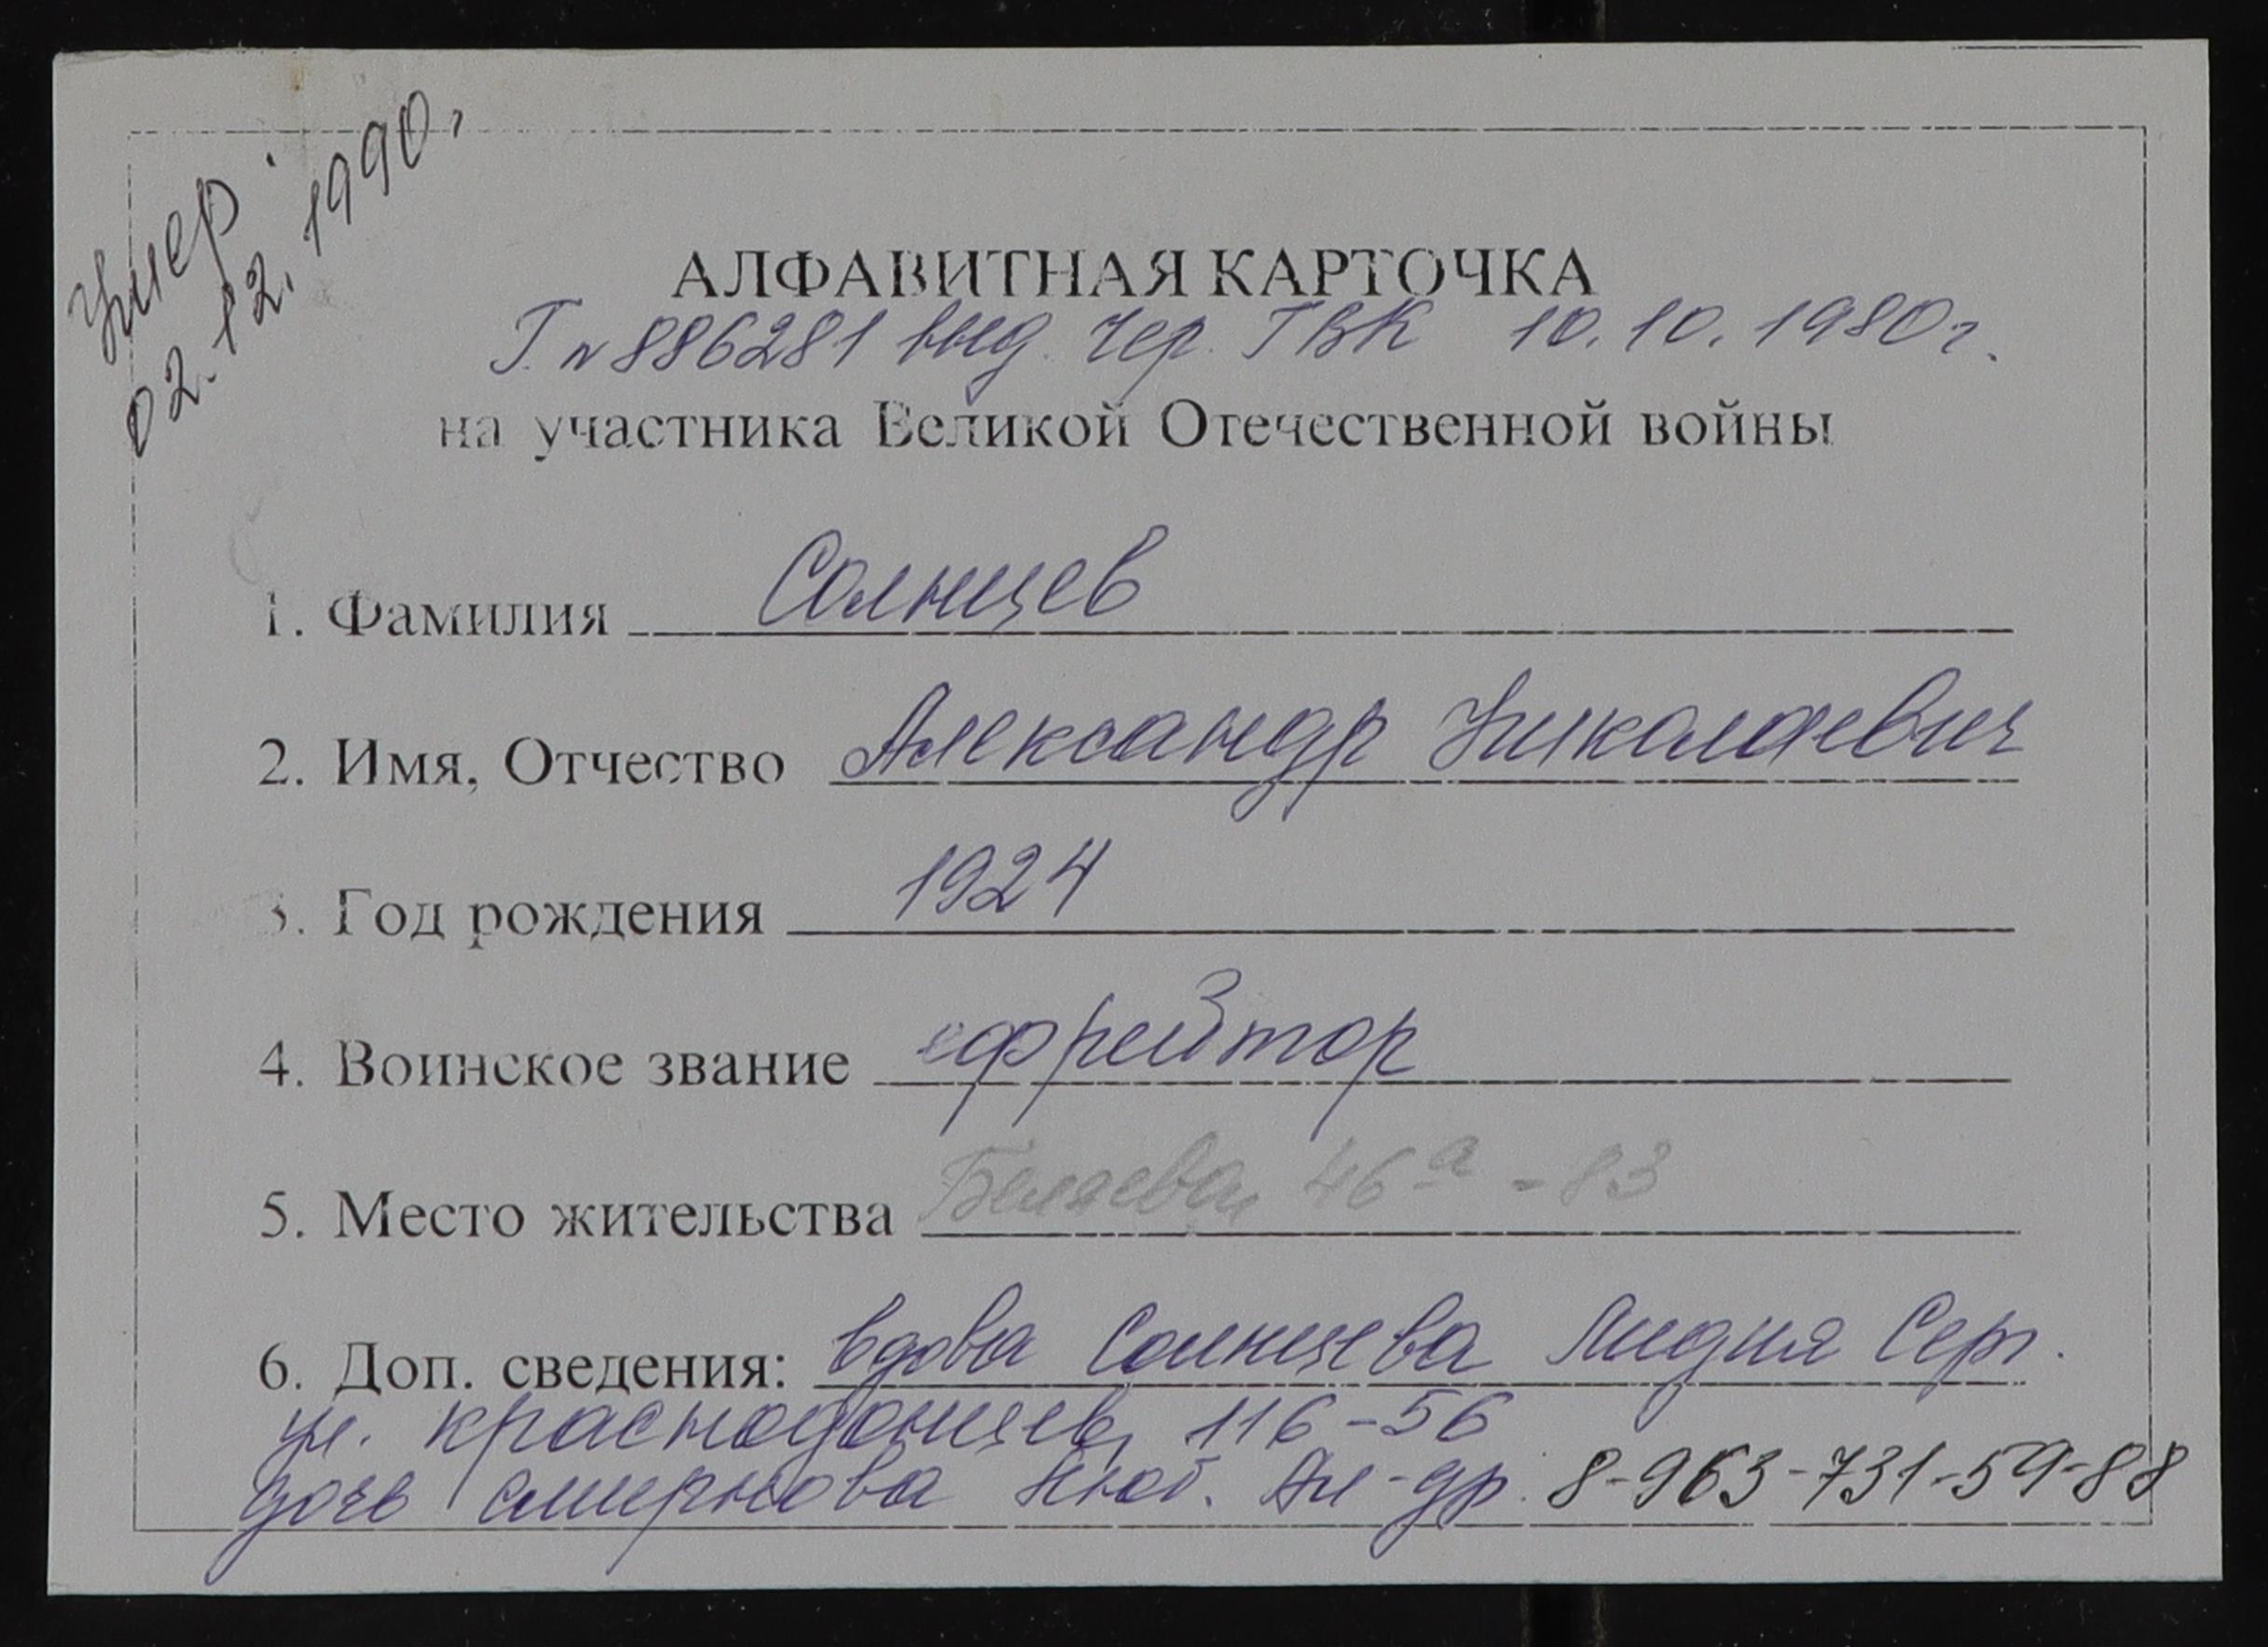 Умер
02.12.1990г
АЛФАВИТНАЯ КАРТОЧКА
Г N 886281 выд. Чер. ГВК 10.10.1980г.
на участника Великой Отечественной войны
1. Фамилия Солнцев
2. Имя, Отчество Александр Николаевич
3. Год рождения 1924
4. Воинское звание ефрейтор
5. Место жительства Беляева, 46а - 83
6. Доп. сведения: вдова Солнцева Лидия Серг.
ул. Краснодонцев, 116-56
дочь Смирнова Люб. Ал-др. 8-963-731-59-88